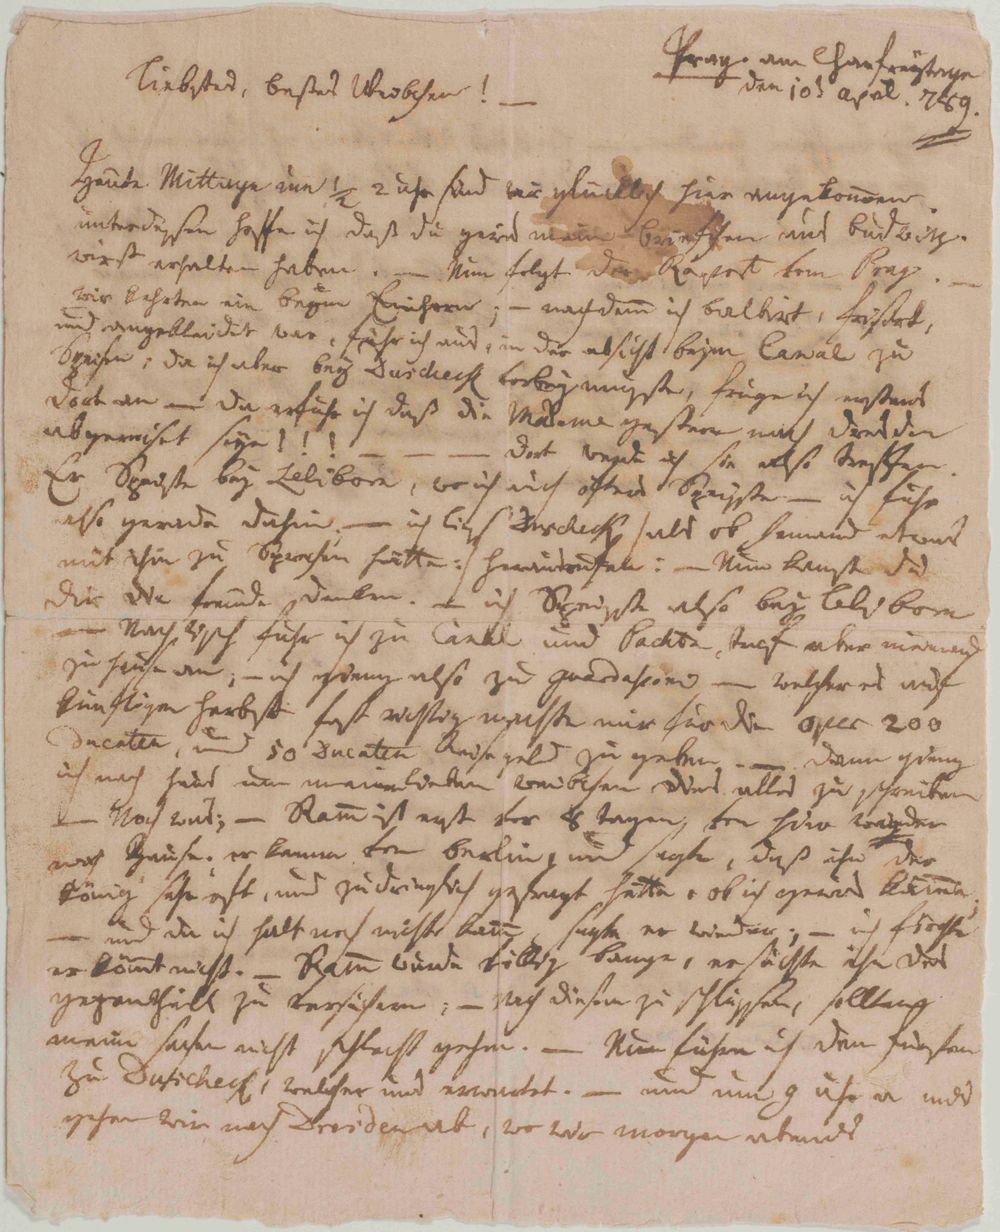 Prag am Charfreytage
den 10t april. 789.
liebstes, bestes Weibchen! —
Heute Mittags um 1/2 2 uhr sind wir glücklich hier angekommen.
unterdessen hoffe ich daß du gewis mein briefchen aus budwitz
wirst erhalten haben. — Nun folgt der Raport von Prag. —
wir kehrten ein beym Einhorn; — nachdem ich balbirt, frisirt,
und angekleidet war, fuhr ich aus, in der absicht beym Canal zu
Speisen; da ich aber bey Duscheck vorbey musste, frug ich erstens
dort an — da erfuhr ich daß die Madame gestern nach dresden
abgereiset seye!!! — — — dort werde ich sie also treffen.
Er Speiste bey Leliborn, wo ich auch öfters Speisste — ich fuhr
also gerade dahin. — ich liess Duscheck /als ob Jemand etwas
mit ihm zu Sprechen hätte:/ herausrufen: — Nun kanst du
dir die freude denken. — ich Speisste also bey Leliborn
— Nach tisch fuhr ich zu Canal und Pachta, traf aber niemand
zu hause an; — ich gieng also zu guardassoni — welcher es auf
künftigen herbst fast richtig machte mir für die oper 200
Ducaten, und 50 Ducaten Reisegeld zu geben. — dann gieng
ich nach haus um meinem lieben weibchen dies alles zu schreiben
— Noch was; — Ram ist erst vor 8 tagen von hier wieder
nach hause. er kamm von berlin, und sagte, daß ihn der
könig sehr oft, und zudringlich gefragt hätte, ob ich gewis käme,
— und da ich halt noch nicht kamm, sagte er wieder; — ich fürchte
er kömmt nicht. — Ram wurde völlig bange, er suchte ihn des
gegentheil zu versichern; — Nach diesem zu schlüssen, sollten
meine sachen nicht schlecht gehen. — Nun führe ich den fürsten
zu Duscheck, welcher uns erwartet. — und um 9 uhr a
gehen wir nach Dresden ab, wo wir morgen abends